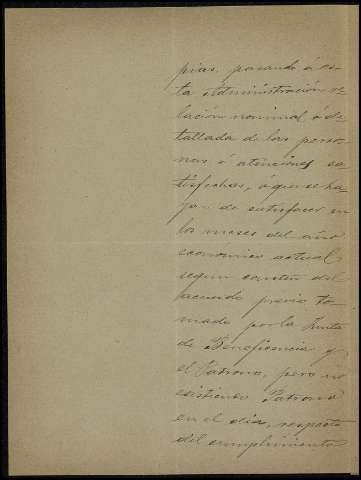 pias, pasando á es-
ta Administración re-
lación nominal ó de-
tallada de las perso-
nas ó atenciones sa-
tisfechas, ó que se ha-
yan de satisfacer en
los meses del año
económico actual,
según conste del
acuerdo previo to-
mado por la Junta
de Beneficencia y
el Patrono, pero no
existiendo Patrono
en el día, respecto
del cumplimiento